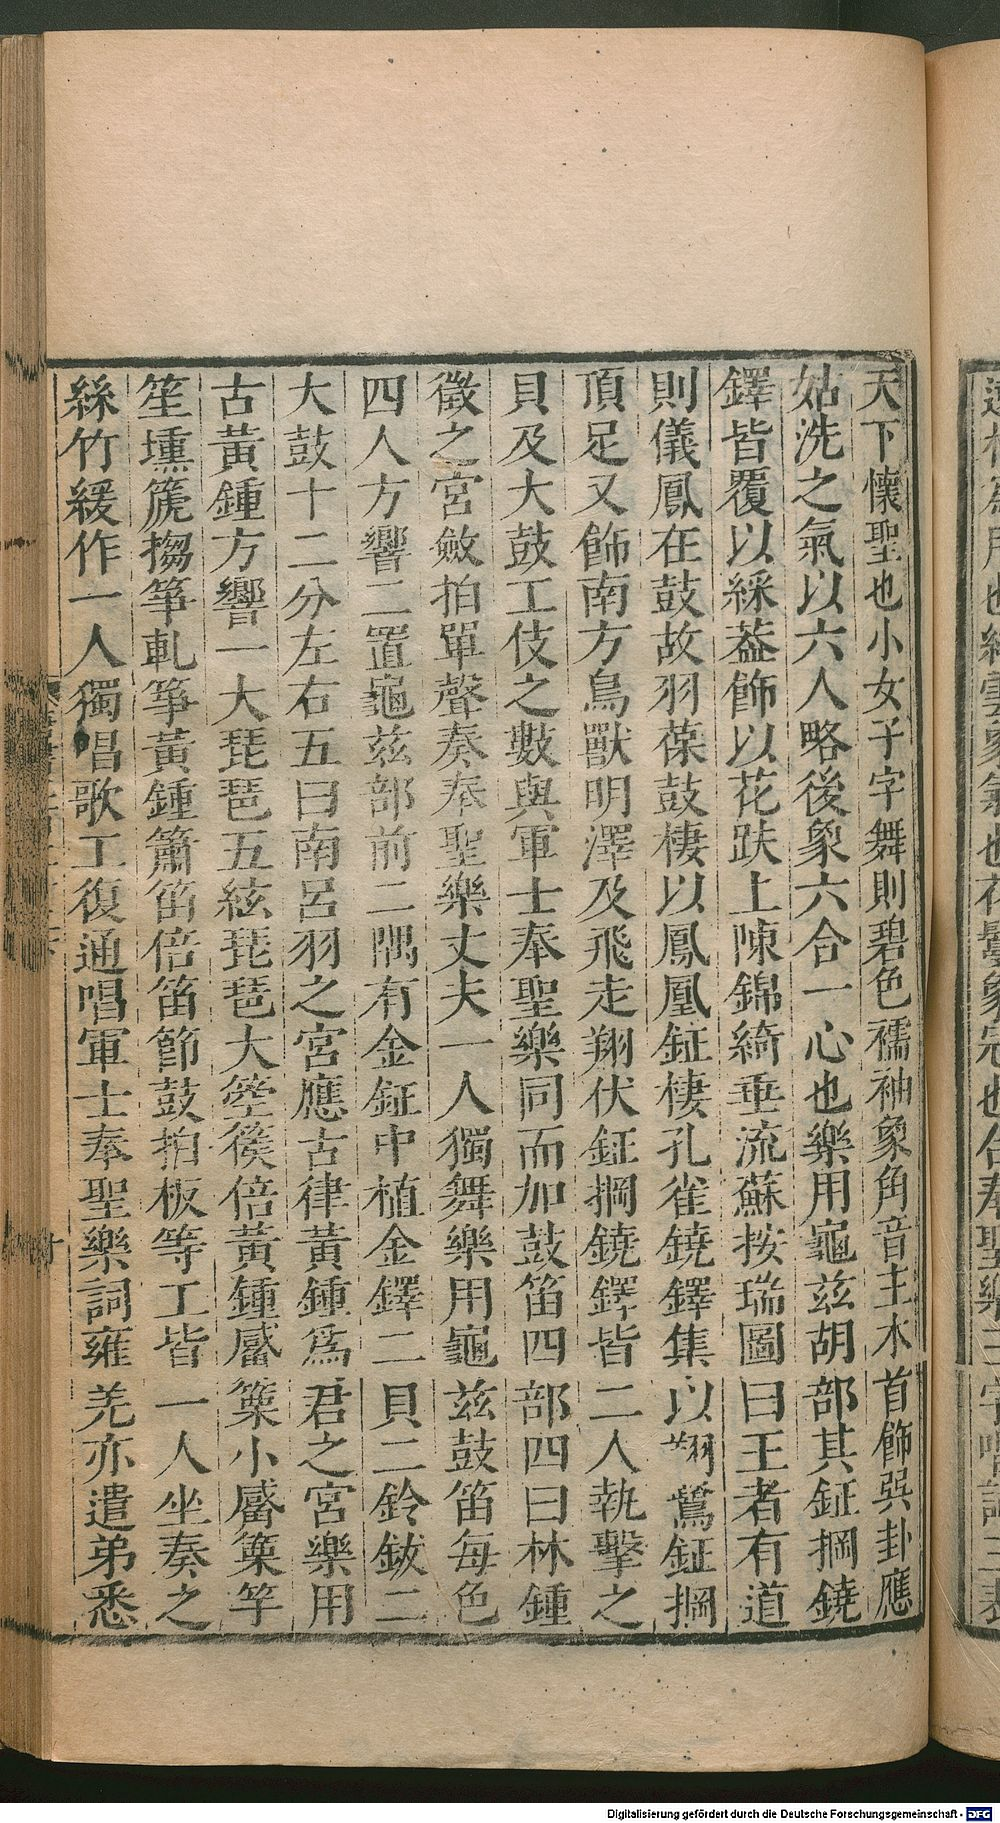 天下懷聖也小女子字舞則碧色襦袖象角音主木首飾巽卦應
姑洗之氣以六人略後象六合一心也樂用龜茲胡部其鉦掆鐃
鐸皆覆以綵葢飾以花趺上陳錦綺垂流蘇按瑞圖曰王者有道
則儀鳳在鼓故羽葆鼓棲以鳳凰鉦棲孔雀鐃鐸集以翔鷺鉦掆
頂足又飾南方鳥獸明澤及飛走翔伏鉦掆鐃鐸皆二人執擊之
貝及大鼓工伎之數與軍士奉聖樂同而加鼓笛四部四曰林鍾
徵之宮斂拍單聲奏奉聖樂丈夫一人獨舞樂用龜茲鼓笛每色
四人方響二置龜茲部前二隅有金鉦中植金鐸二貝二鈴鈸二
大鼓十二分左右五曰南呂羽之宮應古律黃鍾爲君之宮樂用
古黃鍾方響一大琵琶五絃琵琶大箜篌倍黃鍾觱篥小觱篥竽
笙壎篪搊箏軋箏黃鍾簫笛倍笛節鼓拍板等工皆一人坐奏之
絲竹緩作一人獨唱歌工復通唱軍士奉聖樂詞雍羌亦遣弟悉
Digitalisierung gefördert durch die Deutsche Forschungsgemeinschaft - DFG